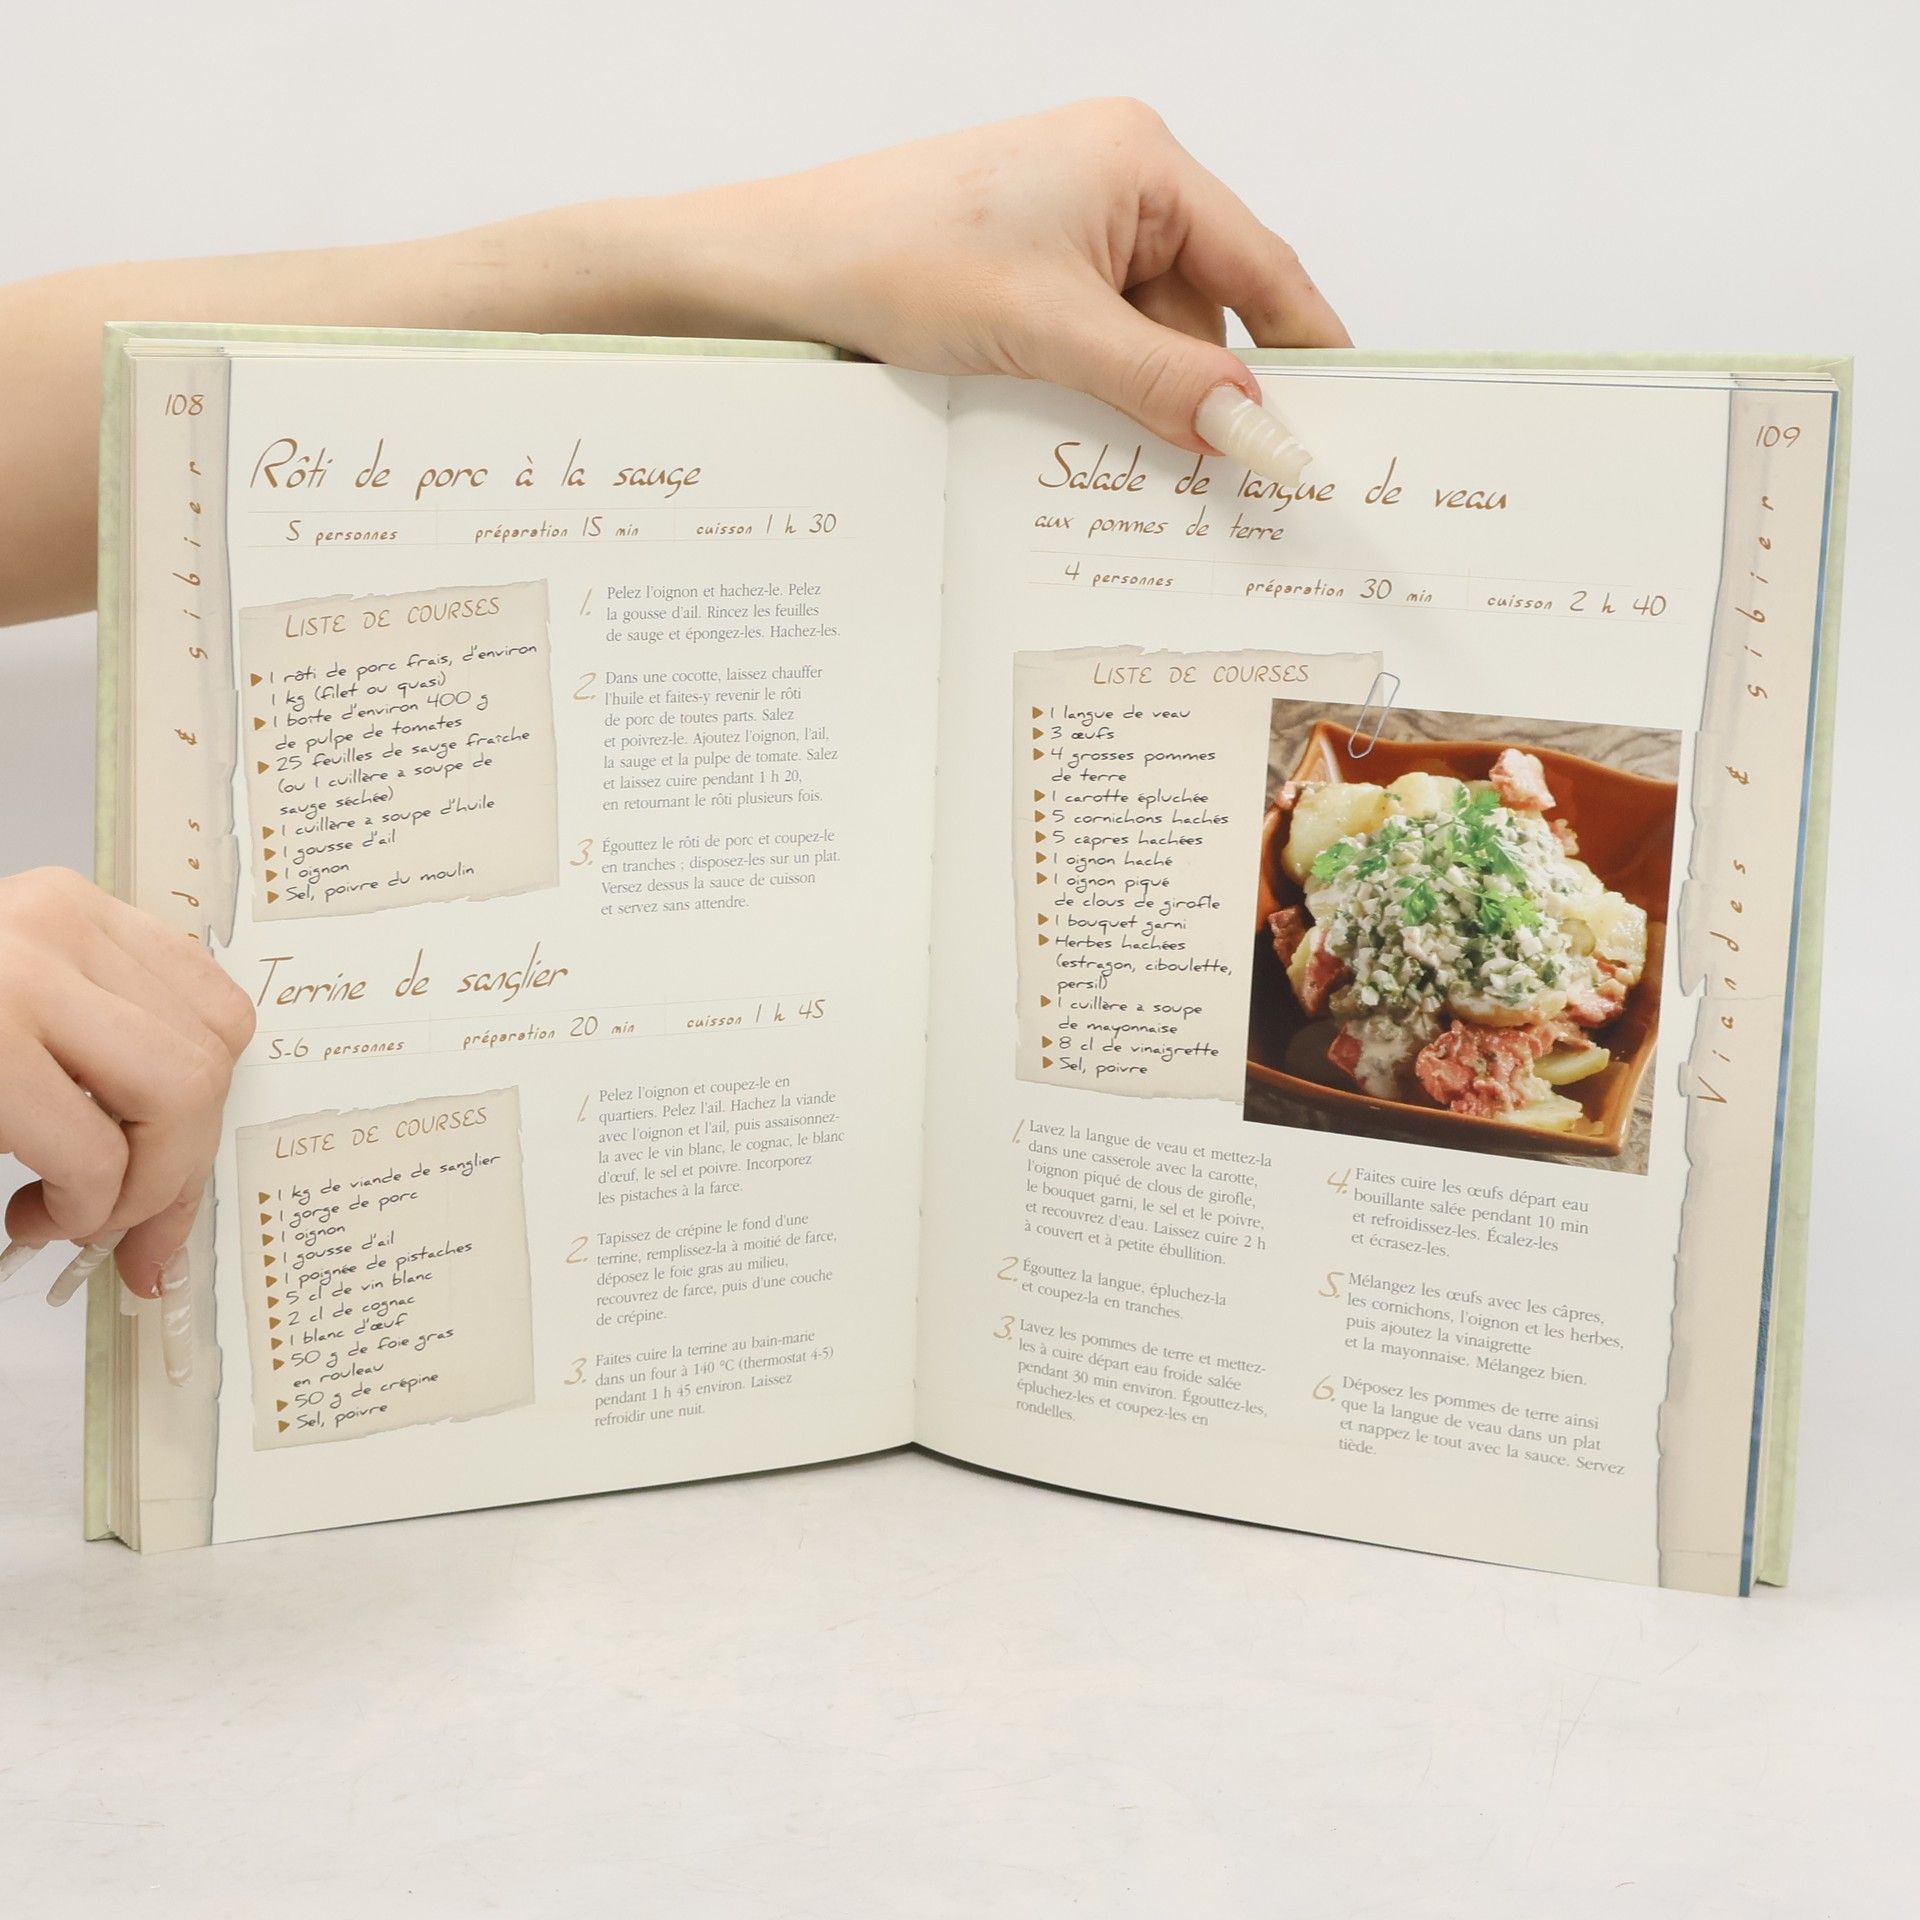 108
Viandes & gibier
Rôti de porc à la sauge
5 personnes préparation 15 min cuisson 1 h 30
LISTE DE COURSES
1 rôti de porc frais, d'environ
1 kg (filet ou quasi)
1 boîte d'environ 400 g
de pulpe de tomates
25 feuilles de sauge fraîche
(ou 1 cuillère à soupe de
sauge séchée)
1 cuillère à soupe d'huile
1 gousse d'ail
1 oignon
Sel, poivre du moulin
1. Pelez l'oignon et hachez-le. Pelez
la gousse d'ail. Rincez les feuilles
de sauge et épongez-les. Hachez-les.
2. Dans une cocotte, laissez chauffer
l'huile et faites-y revenir le rôti
de porc de toutes parts. Salez
et poivrez-le. Ajoutez l'oignon, l'ail,
la sauge et la pulpe de tomate. Salez
et laissez cuire pendant 1 h 20,
en retournant le rôti plusieurs fois.
3. Égouttez le rôti de porc et coupez-le
en tranches ; disposez-les sur un plat.
Versez dessus la sauce de cuisson
et servez sans attendre.
Terrine de sanglier
5-6 personnes préparation 20 min cuisson 1 h 45
LISTE DE COURSES
1 kg de viande de sanglier
1 gorge de porc
1 oignon
1 gousse d'ail
1 poignée de pistaches
5 cl de vin blanc
2 cl de cognac
1 blanc d'œuf
50 g de foie gras
en rouleau
50 g de crépine
Sel, poivre
1. Pelez l'oignon et coupez-le en
quartiers. Pelez l'ail. Hachez la viande
avec l'oignon et l'ail, puis assaisonnez-
la avec le vin blanc, le cognac, le blanc
d'œuf, le sel et poivre. Incorporez
les pistaches à la farce.
2. Tapissez de crépine le fond d'une
terrine, remplissez-la à moitié de farce,
déposez le foie gras au milieu,
recouvrez de farce, puis d'une couche
de crépine.
3. Faites cuire la terrine au bain-marie
dans un four à 140 °C (thermostat 4-5)
pendant 1 h 45 environ. Laissez
refroidir une nuit.
109
Viandes & gibier
Salade de langue de veau
aux pommes de terre
4 personnes préparation 30 min cuisson 2 h 40
LISTE DE COURSES
1 langue de veau
3 œufs
4 grosses pommes
de terre
1 carotte épluchée
5 cornichons hachés
5 câpres hachées
1 oignon haché
1 oignon piqué
de clous de girofle
1 bouquet garni
Herbes hachées
(estragon, ciboulette,
persil)
1 cuillère à soupe
de mayonnaise
8 cl de vinaigrette
Sel, poivre
1. Lavez la langue de veau et mettez-la
dans une casserole avec la carotte,
l'oignon piqué de clous de girofle,
le bouquet garni, le sel et le poivre,
et recouvrez d'eau. Laissez cuire 2 h
à couvert et à petite ébullition.
2. Égouttez la langue, épluchez-la
et coupez-la en tranches.
3. Lavez les pommes de terre et mettez-
les à cuire départ eau froide salée
pendant 30 min environ. Égouttez-les,
épluchez-les et coupez-les en
rondelles.
4. Faites cuire les œufs départ eau
bouillante salée pendant 10 min
et refroidissez-les. Écalez-les
et écrasez-les.
5. Mélangez les œufs avec les câpres,
les cornichons, l'oignon et les herbes,
puis ajoutez la vinaigrette
et la mayonnaise. Mélangez bien.
6. Déposez les pommes de terre ainsi
que la langue de veau dans un plat
et nappez le tout avec la sauce. Servez
tiède.